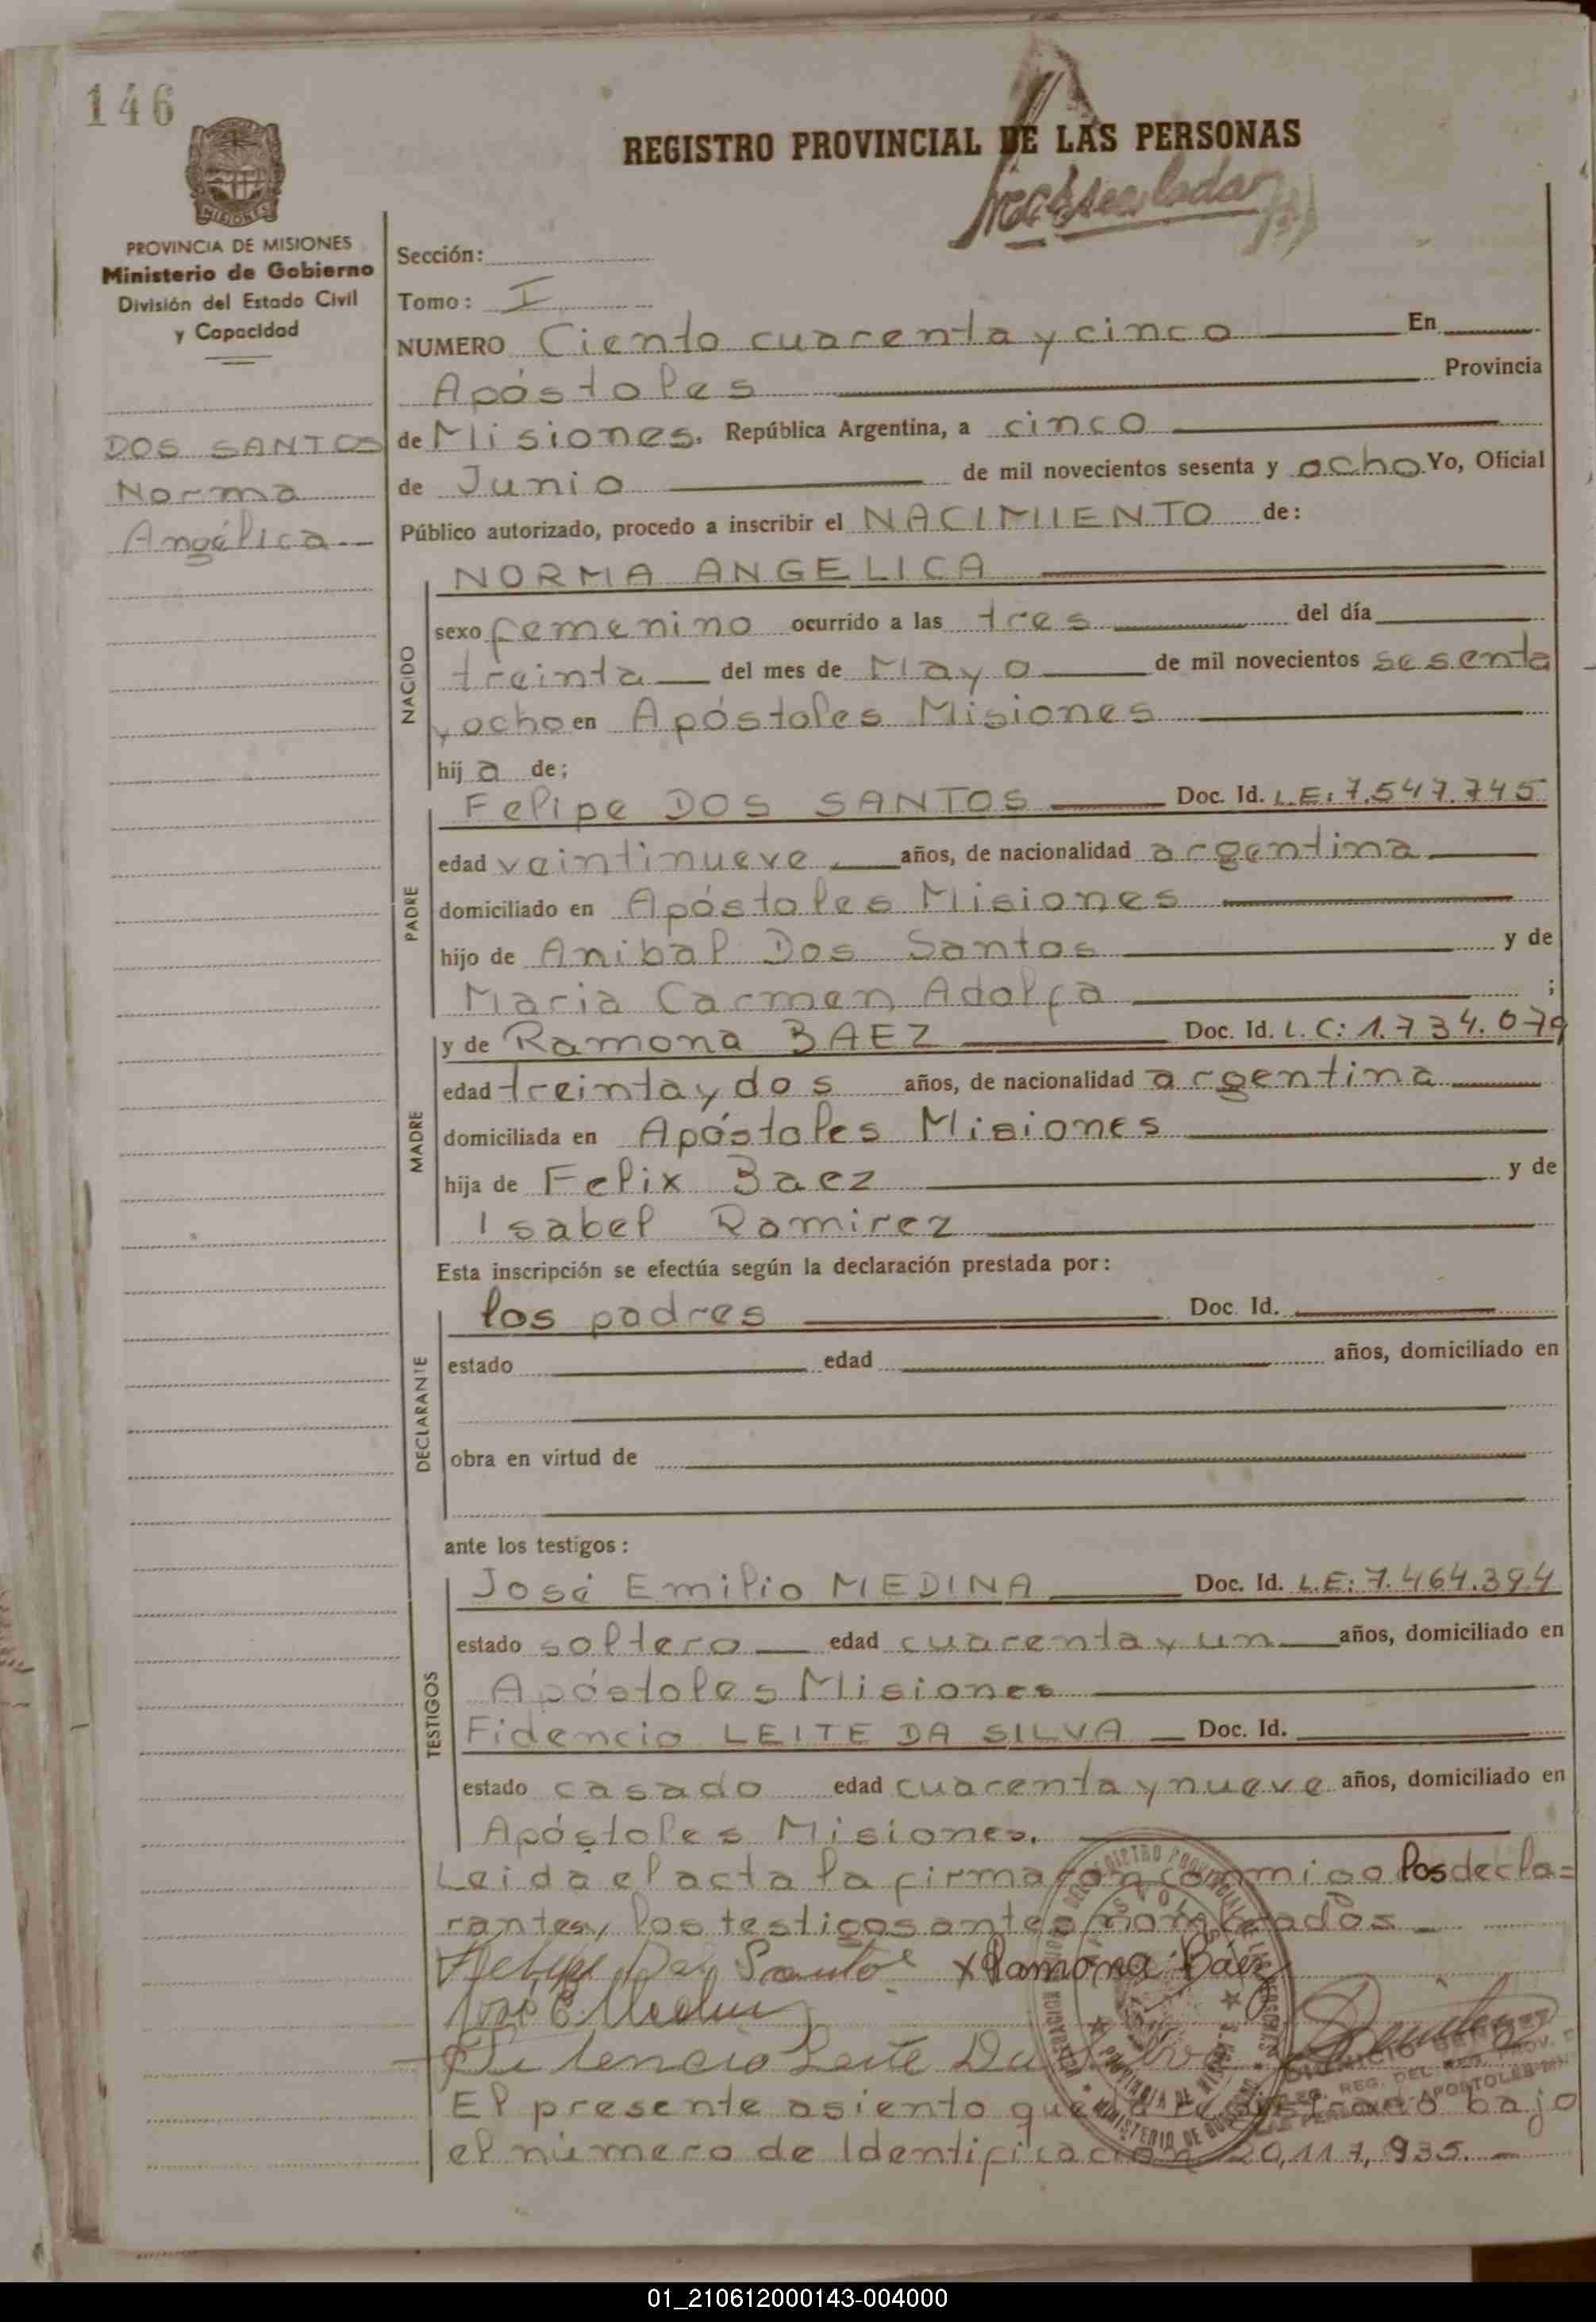 146
REGISTRO PROVINCIAL DE LAS PERSONAS
MISIONES
PROVINCIA DE MISIONES
Ministerio de Gobierno
División del Estado Civil
y Capacidad
DOS SANTOS
Norma
Angélica
Sección:
Tomo: I
NUMERO Ciento cuarenta y cinco En
Apóstoles Provincia
de Misiones. República Argentina, a cinco
de Junio de mil novecientos sesenta y ocho Yo, Oficial
Público autorizado, procedo a inscribir el NACIMIENTO de:
NACIDO
NORMA ANGELICA
sexo femenino ocurrido a las tres del día
treinta del mes de Mayo de mil novecientos sesenta
y ocho en Apóstoles Misiones
hij a de;
PADRE
Felipe DOS SANTOS Doc. Id. L.E: 7.547.745
edad veintinueve años, de nacionalidad argentina
domiciliado en Apóstoles Misiones
hijo de Anibal Dos Santos y de
Maria Carmen Adolfa ;
MADRE
y de Ramona BAEZ Doc. Id. L.C: 1.734.079
edad treinta y dos años, de nacionalidad argentina
domiciliada en Apóstoles Misiones
hija de Felix Baez y de
Isabel Ramirez
Esta inscripción se efectúa según la declaración prestada por:
DECLARANTE
los padres Doc. Id.
estado edad años, domiciliado en
obra en virtud de
ante los testigos:
TESTIGOS
José Emilio MEDINA Doc. Id. L.E: 7.464.394
estado soltero edad cuarenta y un años, domiciliado en
Apóstoles Misiones
Fidencio LEITE DA SILVA Doc. Id.
estado casado edad cuarenta y nueve años, domiciliado en
Apóstoles Misiones.
Leida el acta la firmaron conmigo los decla=
rantes y los testigos antes nombrados
Felipe Dos Santos x Ramona Báez
José E Medina
Fidencio Leite Da Silva
El presente asiento queda registrado bajo
el número de Identificación 20,117,935.
01_210612000143-004000